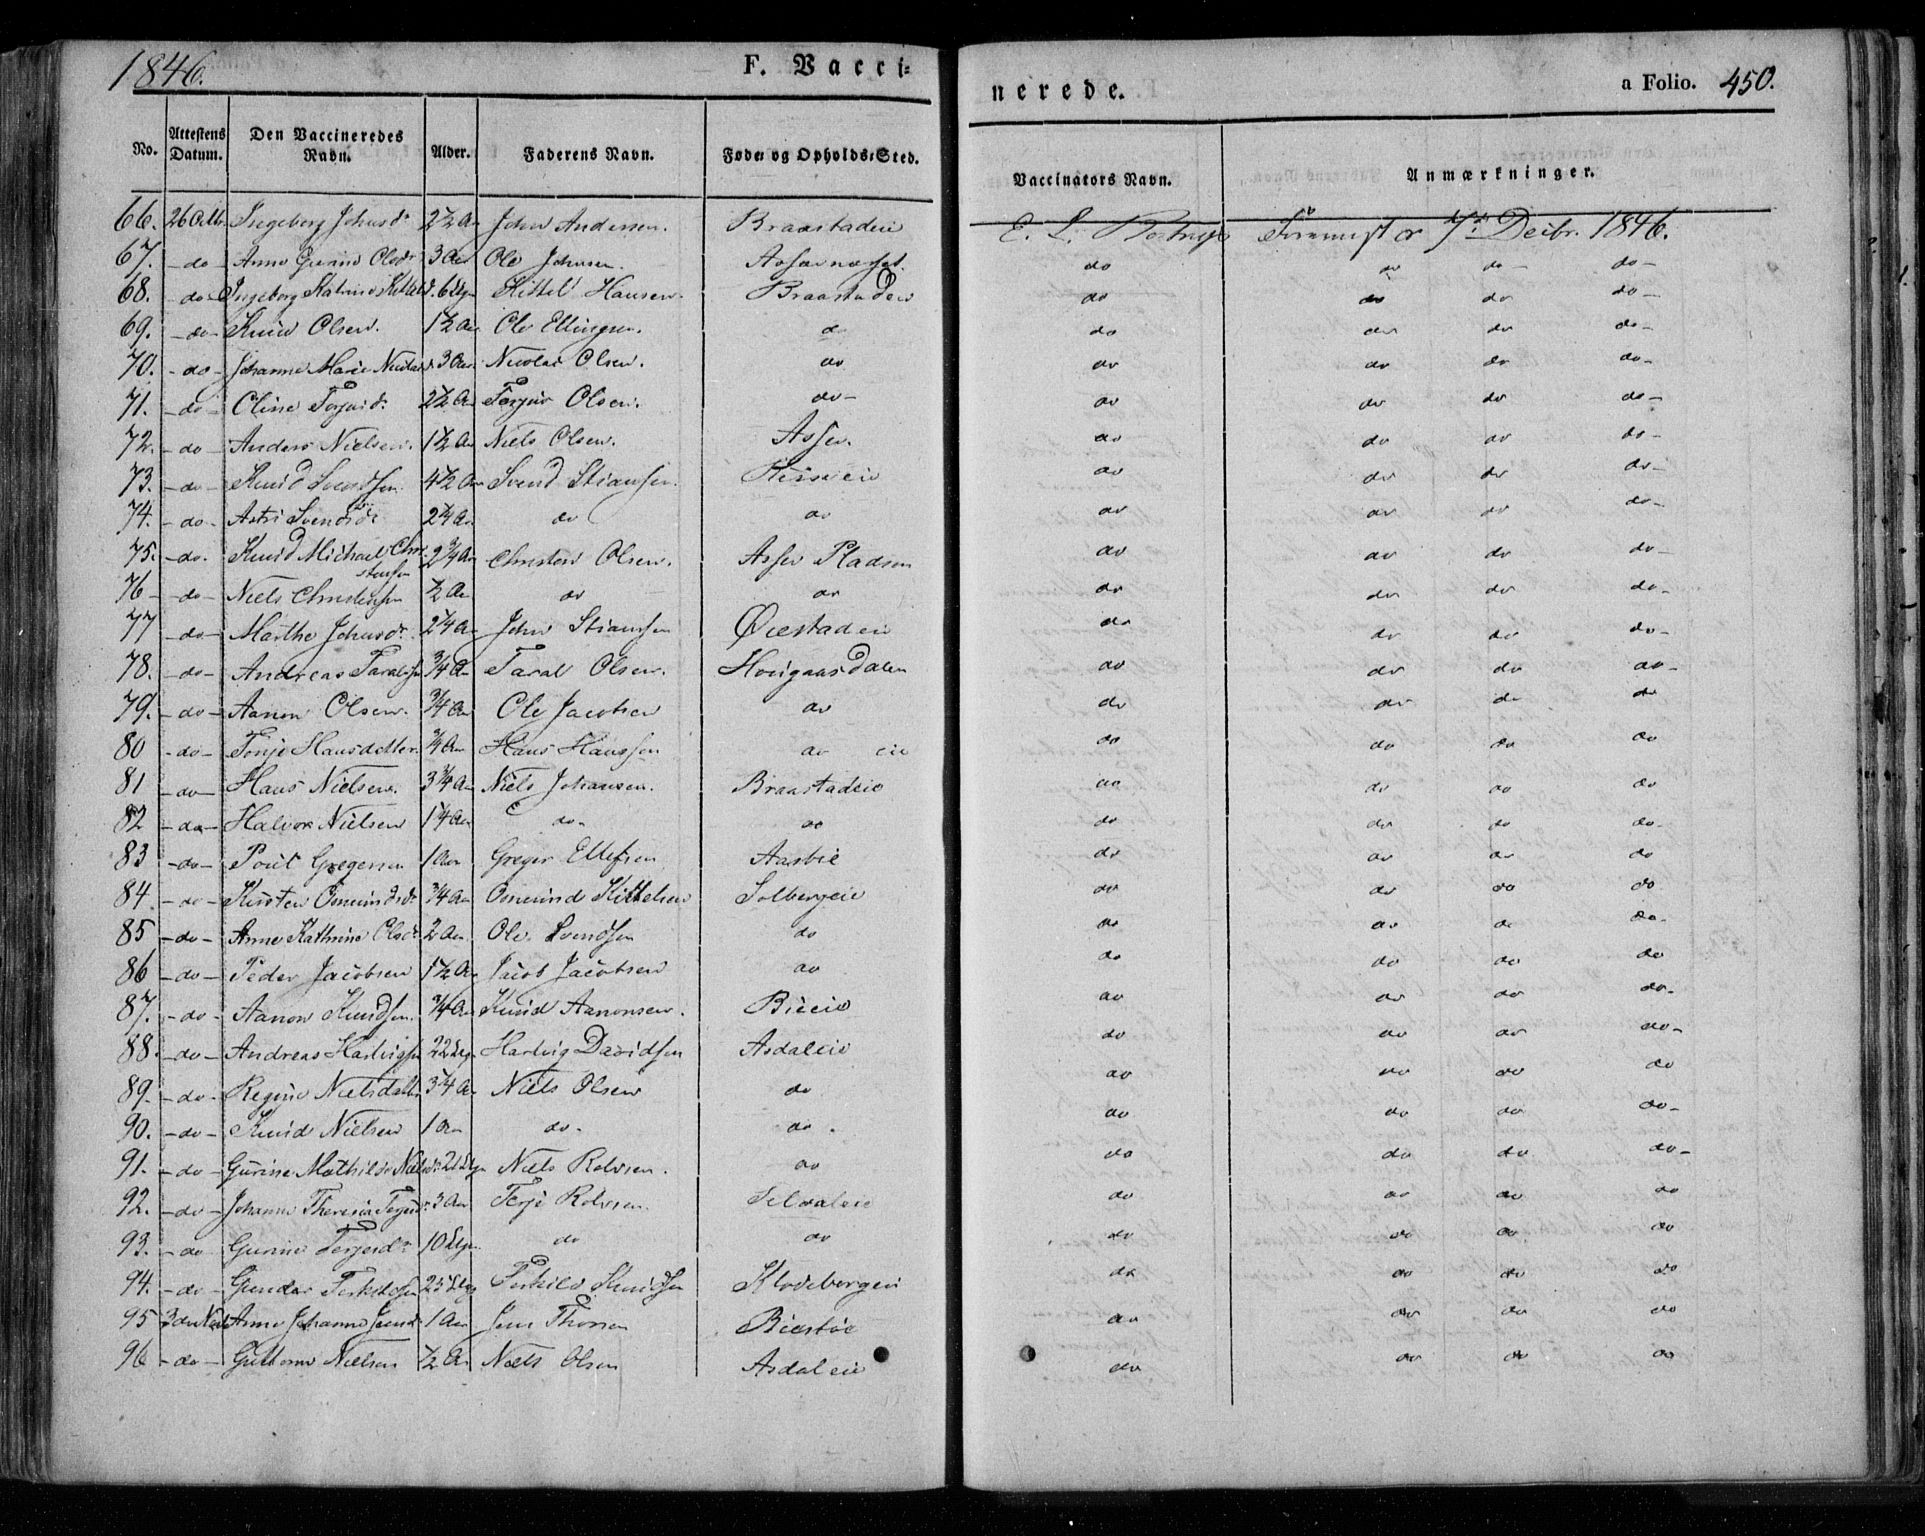 1846. F. Vacci=
nerede. a Folio. 450.
No. Attestens Datum. Den Vaccineredes Navn. Alder. Faderens Navn. Føde= og Opholds=Sted. Vaccinators Navn. Anmærkninger.
66. 26 Octbr. Ingeborg Johnsdr 2½ Aar John Andersen. Braastadeie E. L. 7de Decbr. 1846.
67. -do- Anne Gurine Olsdr 3 Aar Ole Johnsen. do do do- do-
68. -do- Ingeborg Katrine Kittelsd. 6 Ugr Kittel Hansen. Braastadeie do do do do-
69. -do- Knud Olsen. 1½ Aar Ole Ellingsen. do do do do do-
70. -do- Johanne Marie Nicolaid. 3 Aar Nicolai Olsen. do do do do do-
71. -do- Oline Terjesdr. 2½ Aar Terjus Olsen. do- do do do do-
72. -do- Anders Nielsen. 1½ Aar Niels Olsen. Asser. do do do do-
73. -do- Knud Svendsen 4½ Aar Svend Stiansen. do do do do-
74. -do- Astri Svendsdr 2¼ Aar do do do do do do-
75. -do. Knud Michael Chri
stensen 2¾ Aar Christen Olsen. Asser Pladsen do do do do-
76- -do- Niels Christensen ½ Aar do do do do do do-
77 -do- Marthe Johnsdr. 2¼ Aar John Stiansen Øiestadeie do do do do-
78. -do- Andreas Taralsen ¾ Aar Taral Olsen. Hougaasdalen do do do do-
79. -do- Aanon Olsen. ¾ Aar Ole Jacobsen do do do do do
80 -do- Tonje Hansdatter. ¾ Aar Hans Hanssen do eie do do do do
81 -do- Hans Nielsen. 3¾ Aar Niels Johansen. Braastadeie do do do do
82 -do- Halvor Nielsen 1¼ Aar do- do do do do do-
83 -do- Poul Gregersen 1 Aar Greger Ellefsen Aasbie do do do do
84. -do- Kirsten Osmundsdr ¾ Aar Osmund Kittelsen Solbergeie do do do do
85 -do- Anne Kathrine Olsdr 2 Aar Ole Svendsen do do do do do-
86 -do- Peder Jacobsen 1½ Aar Jacob Jacobsen do do do do do
87. -do- Aanon Knudsen. ¾ Aar Knud Aanonsen. Bieeie do do do do-
88. -do- Andreas Hartvigsen 22 Ugr Hartvig Davidsen Asdaleie do do do do-
89. -do- Regine Nielsdatter 3¼ Aar Niels Olsen do do do do do
90. -do- Knud Nielsen 1 Aar do- do. do do do do-
91. -do- Gurine Mathilde Nielsdr 21 Ugr Niels Rolvsen. do do do do do-
92. -do- Johanne Theresia Terjesdr 3 Aar Terje Rolvsen. do do do do
93. -do Gurine Terjesdr 10 Ugr. do do do do do do
94. -do- Gunder Terkildsen 23 Ugr Terkild Knudsen Klodebergeie do do do do
95 3die Novbr Anne Johanne Jensdr 1 Aar Jens Thorsen do do do do
96 -do- Guttorm Nielsen ½ Aar Niels Olsen Asdaleie do do do do